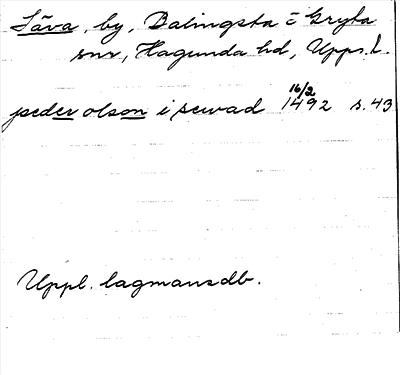 Säva, by, Balingsta o Gryta
snr, Hagunda hd, Upps. l.
peder olson i sewad 16/2 1492 s. 43
Uppl. lagmansdb.